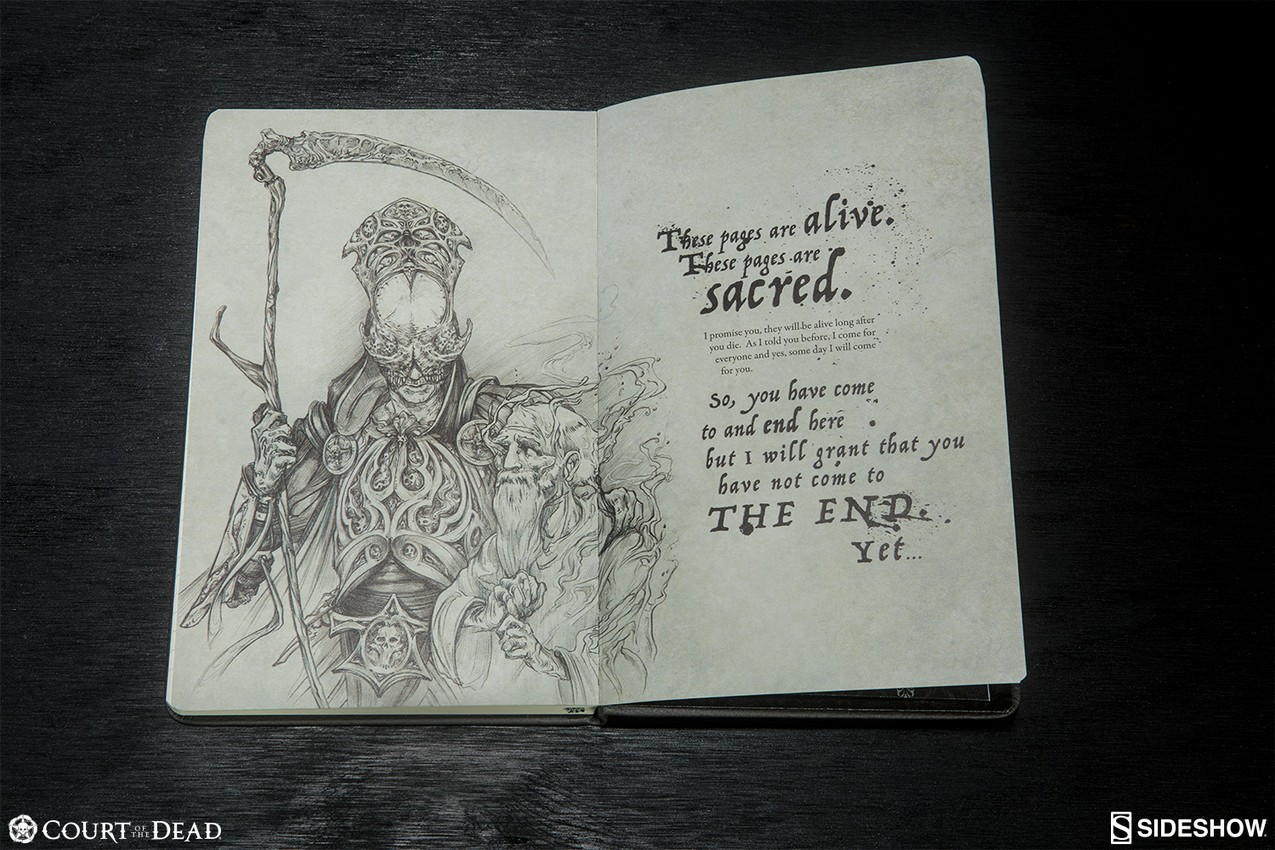 These pages are alive.
These pages are
sacred.
I promise you, they will be alive long after
you die. As I told you before, I come for
everyone and yes, some day I will come
for you.
So, you have come
to and end here
but I will grant that you
have not come to
THE END.
Yet...
COURT OF THE DEAD
SIDESHOW